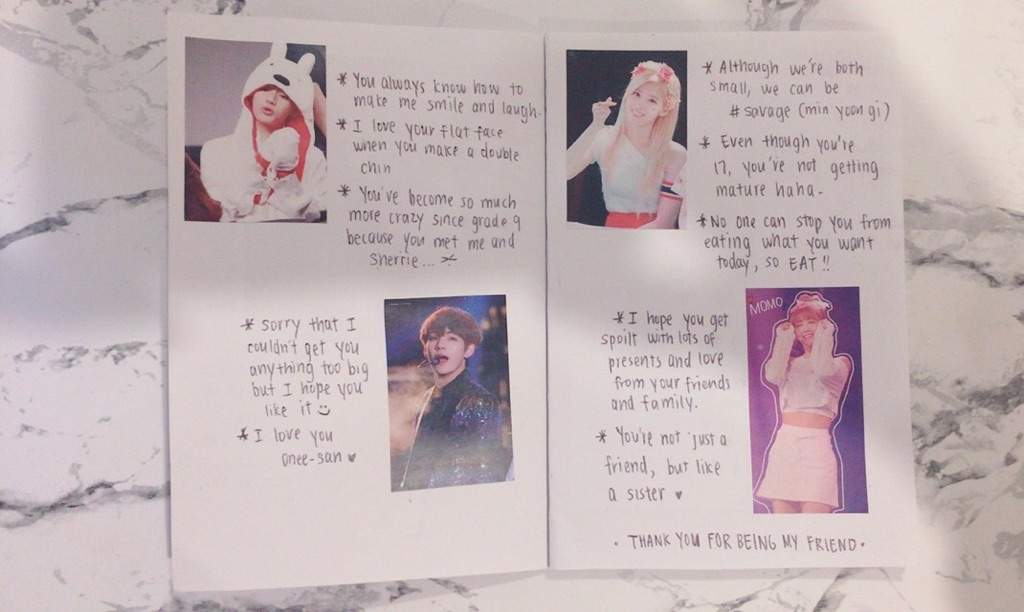 * You always know how to
make me smile and laugh.
* I love your flat face
when you make a double
chin
* You've become so much
more crazy since grade 9
because you met me and
Sherrie...
* sorry that I
couldn't get you
anything too big
but I hope you
like it
* I love you
onee-san ♥
* Although we're both
small, we can be
# savage (min yoon gi)
* Even though you're
17, you're not getting
mature haha.
* No one can stop you from
eating what you want
today, so EAT!!
MOMO
* I hope you get
spoilt with lots of
presents and love
from your friends
and family.
* You're not just a
friend, but like
a sister ♥
• THANK YOU FOR BEING MY FRIEND •